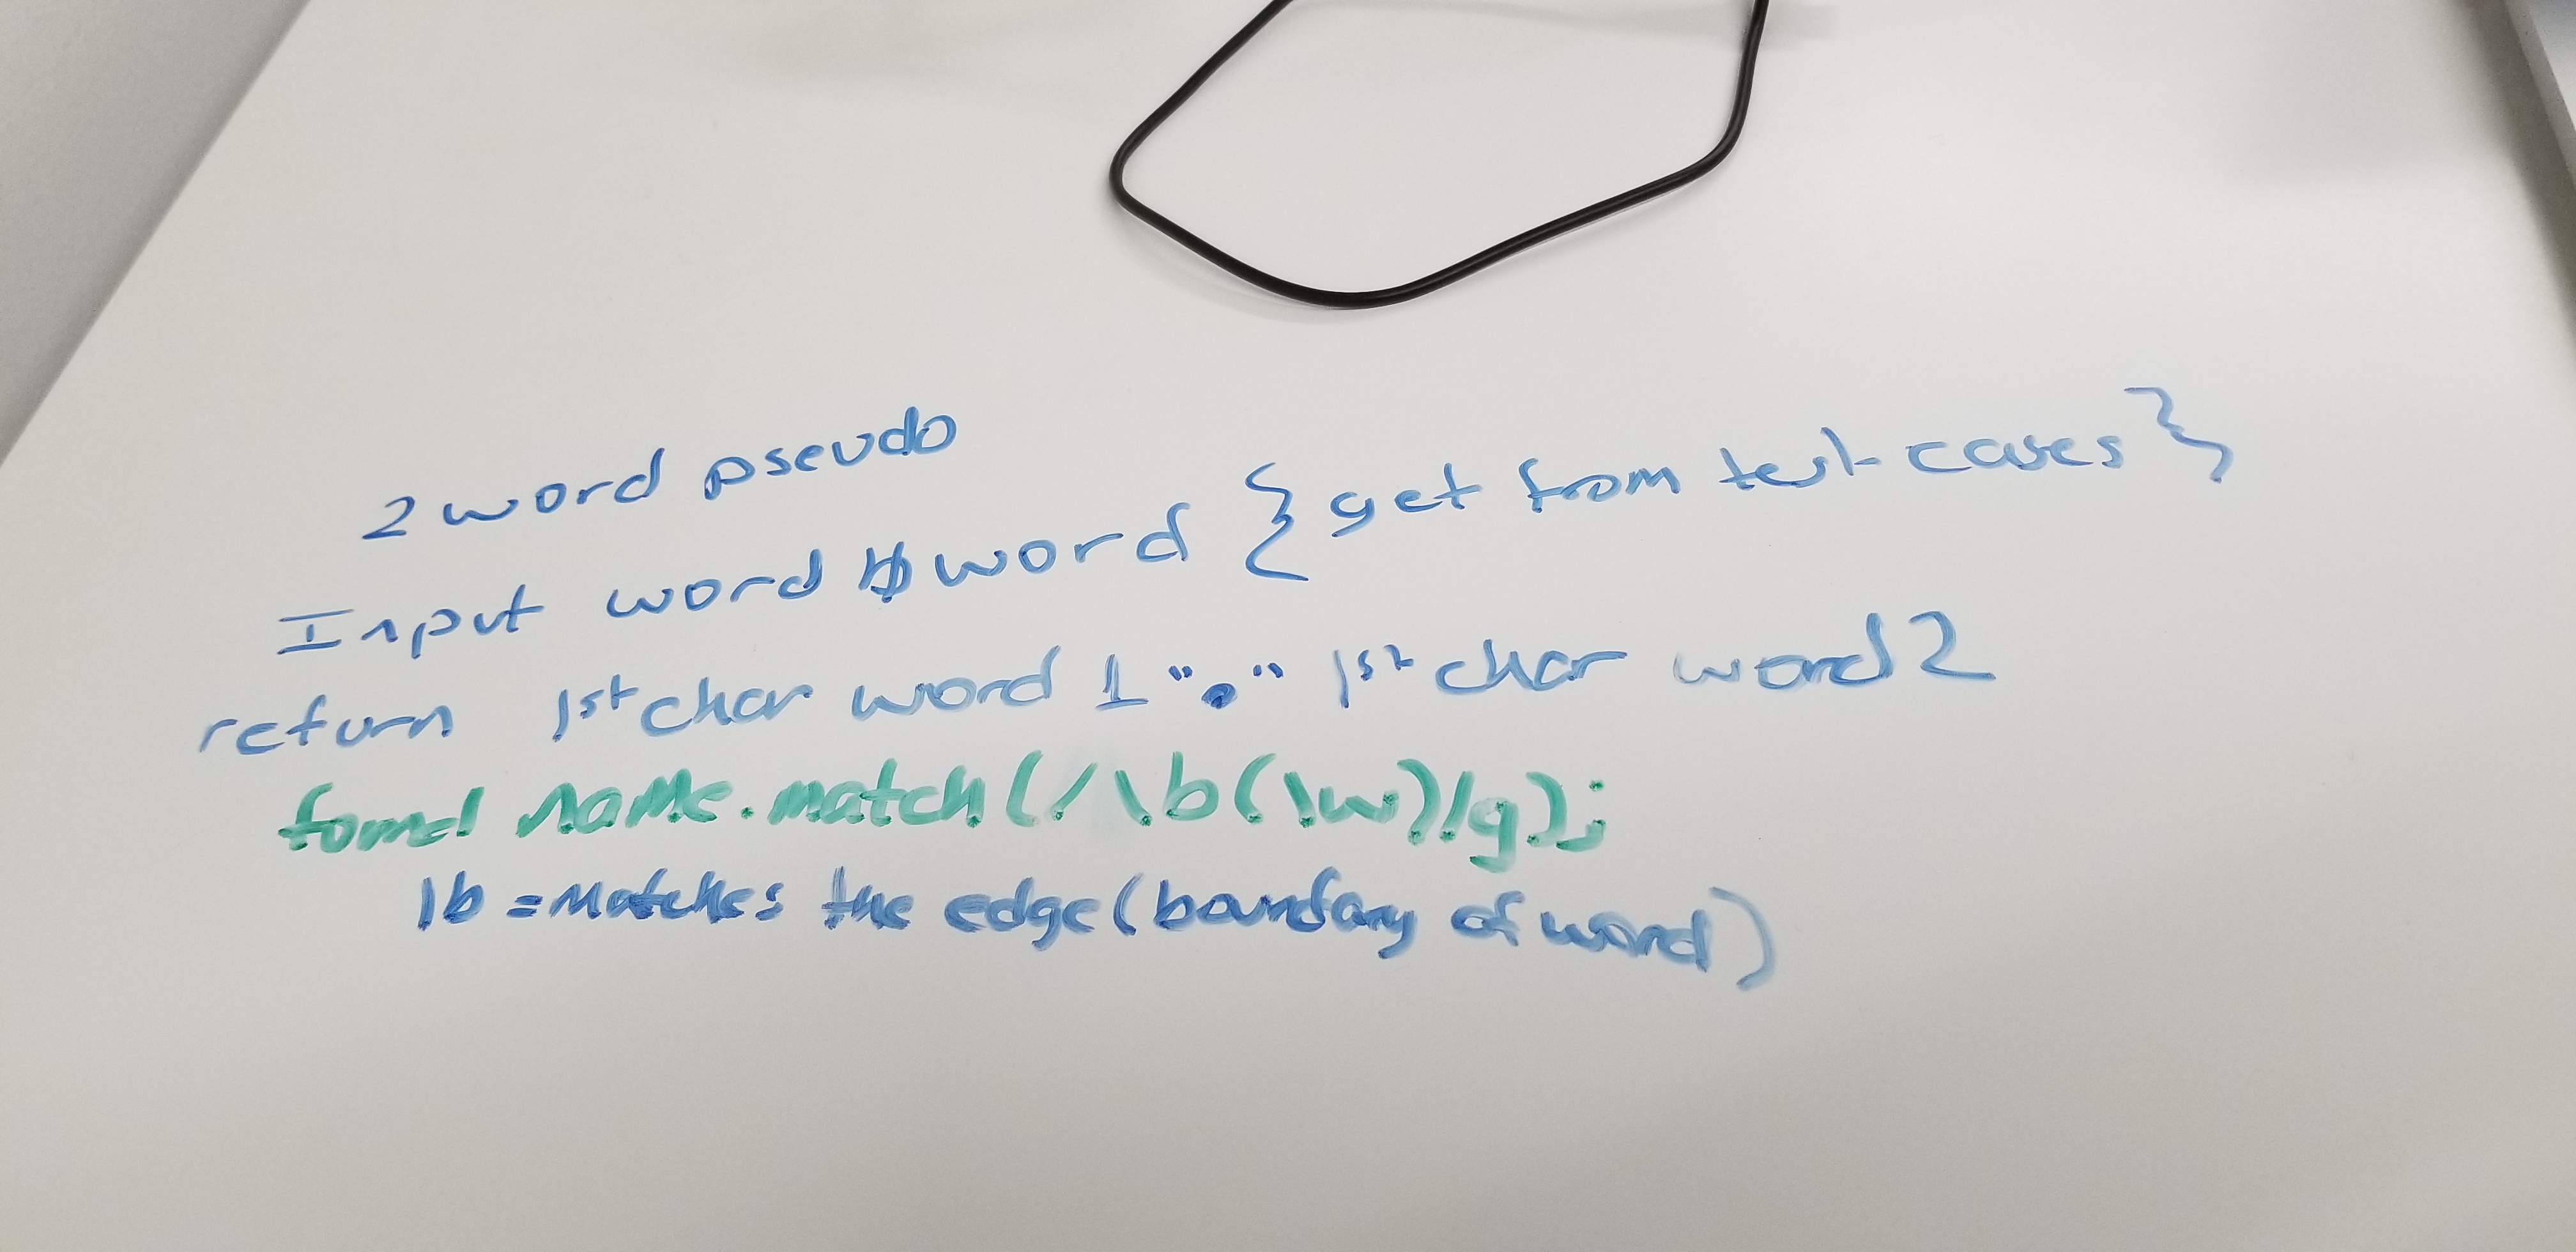 2 word pseudo
Input word ␢ word {get from test cases}
return 1st char word 1 "." 1st char word 2
found name.match(/\b(\w)/g);
\b = matches the edge (boundary of word)